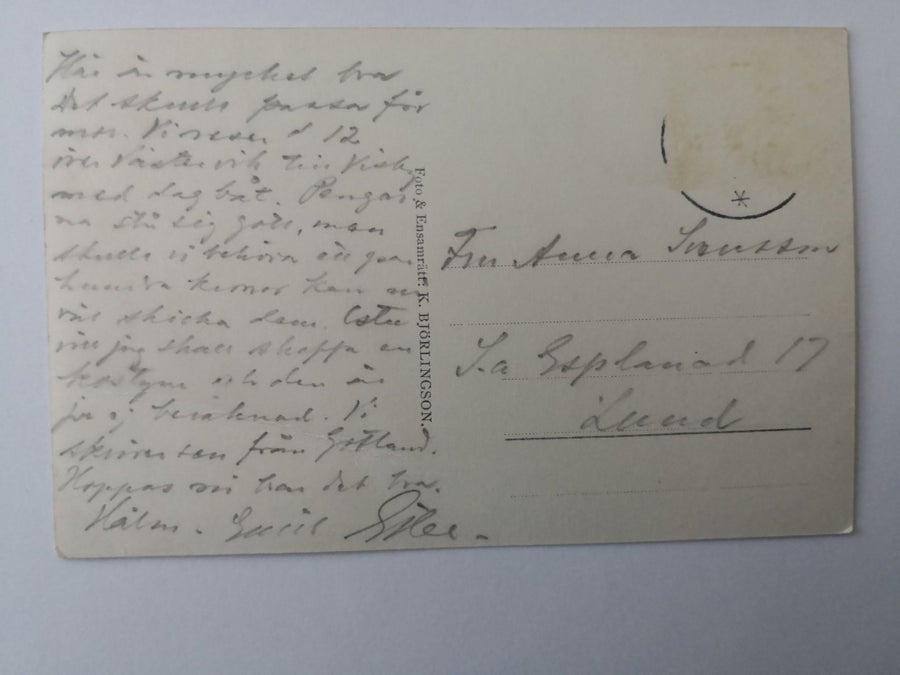 Här är mycket bra
Det skulle passa för
mor. Vi reser d 12
över Västervik till Visby
med dagbåt. Pengar-
na stå sig gott, men
skulle vi behöva ett par
hundra kronor kan ni
väl skicka dem.
vill jag skall skaffa en
kostym och den är
ju ej beräknad. Vi
skriver sen från Gotland.
Hoppas ni har det bra.
Hälsn.
Foto & Ensamrätt: K. BJÖRLINGSON.
Fru Anna Svensson
S.a Esplanad 17
Lund